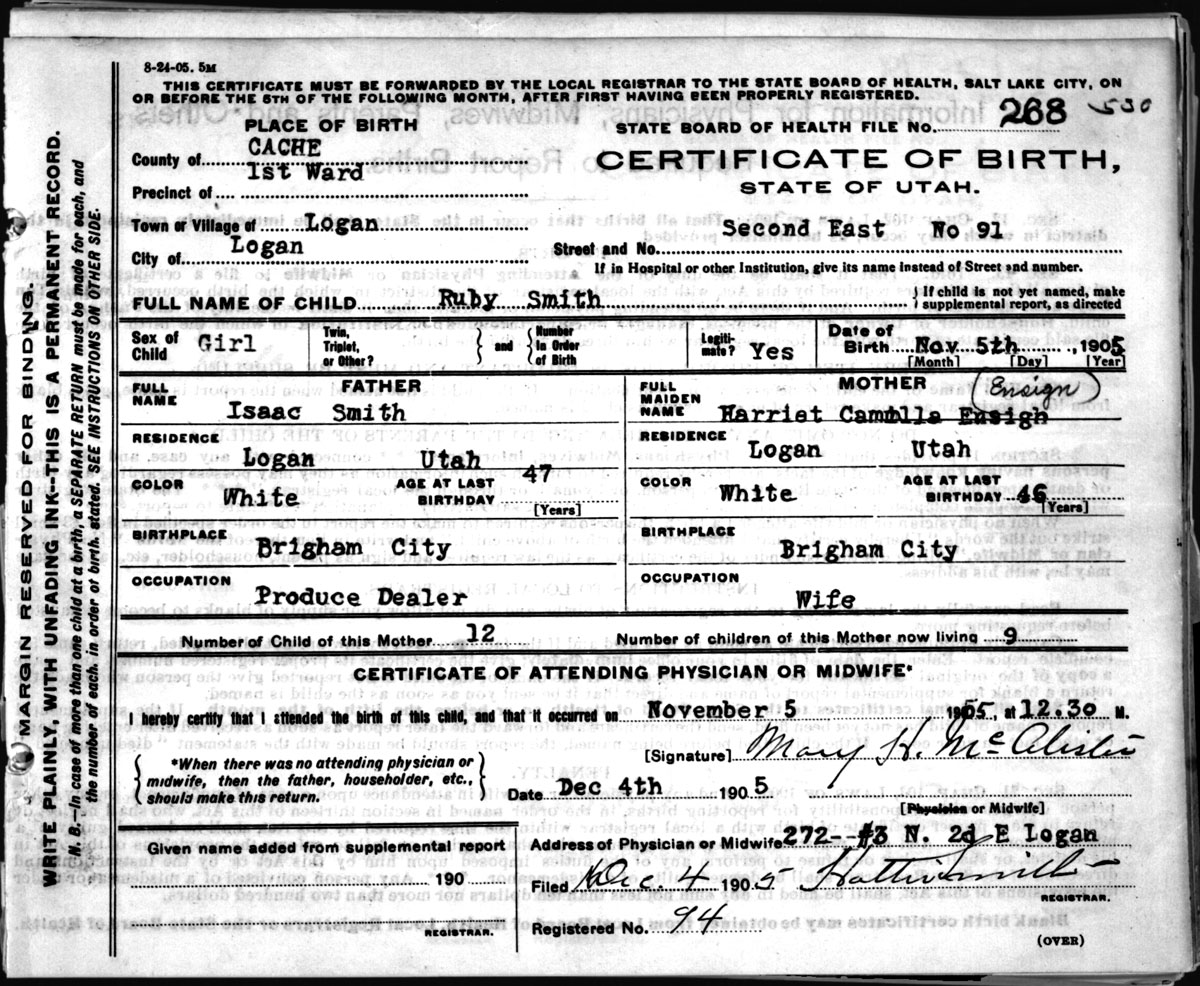 8-24-05. 5M
THIS CERTIFICATE MUST BE FORWARDED BY THE LOCAL REGISTRAR TO THE STATE BOARD OF HEALTH, SALT LAKE CITY, ON
OR BEFORE THE 5TH OF THE FOLLOWING MONTH, AFTER FIRST HAVING BEEN PROPERLY REGISTERED.
PLACE OF BIRTH
STATE BOARD OF HEALTH FILE No. 268 530
County of CACHE
CERTIFICATE OF BIRTH,
Precinct of 1st Ward
STATE OF UTAH.
Town or Village of Logan
City of Logan
Street and No. Second East No 91
If in Hospital or other Institution, give its name instead of Street and number.
FULL NAME OF CHILD Ruby Smith
} If child is not yet named, make
supplemental report, as directed
Sex of Child Girl
Twin, Triplet, or Other? } and { Number in Order of Birth
Legiti-mate? Yes
Date of Birth Nov 5th, 1905
[Month] [Day] [Year]
FATHER
FULL NAME Isaac Smith
MOTHER
FULL MAIDEN NAME Harriet Camilla Ensigh (Ensign)
RESIDENCE Logan Utah
RESIDENCE Logan Utah
COLOR White AGE AT LAST BIRTHDAY 47 [Years]
COLOR White AGE AT LAST BIRTHDAY 46 [Years]
BIRTHPLACE Brigham City
BIRTHPLACE Brigham City
OCCUPATION Produce Dealer
OCCUPATION Wife
Number of Child of this Mother 12 Number of children of this Mother now living 9
CERTIFICATE OF ATTENDING PHYSICIAN OR MIDWIFE*
I hereby certify that I attended the birth of this child, and that it occurred on November 5 1905, at 12.30 M.
{ *When there was no attending physician or
midwife, then the father, householder, etc.,
should make this return. }
[Signature] Mary H. McAlister
Date Dec 4th 1905
[Physician or Midwife]
Given name added from supplemental report
190
REGISTRAR.
Address of Physician or Midwife 272--#3 N. 2d E Logan
Filed Dec. 4 1905 Hattie Smith
REGISTRAR.
Registered No. 94
(OVER)
MARGIN RESERVED FOR BINDING.
WRITE PLAINLY, WITH UNFADING INK--THIS IS A PERMANENT RECORD.
N. B.—In case of more than one child at a birth, a SEPARATE RETURN must be made for each, and
the number of each, in order of birth, stated. SEE INSTRUCTIONS ON OTHER SIDE.